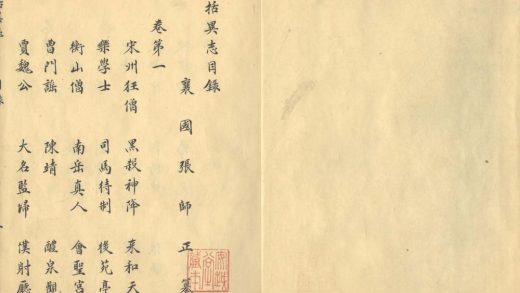 括異志目錄
襄國張師正纂
卷第一
宋州狂僧 黑殺神降 來和天
樂學士 司馬待制 後苑亭
衡山僧 南岳真人 會聖宮
曹門謠 陳靖 醴泉觀
賈魏公 大名監埽 僕射廳